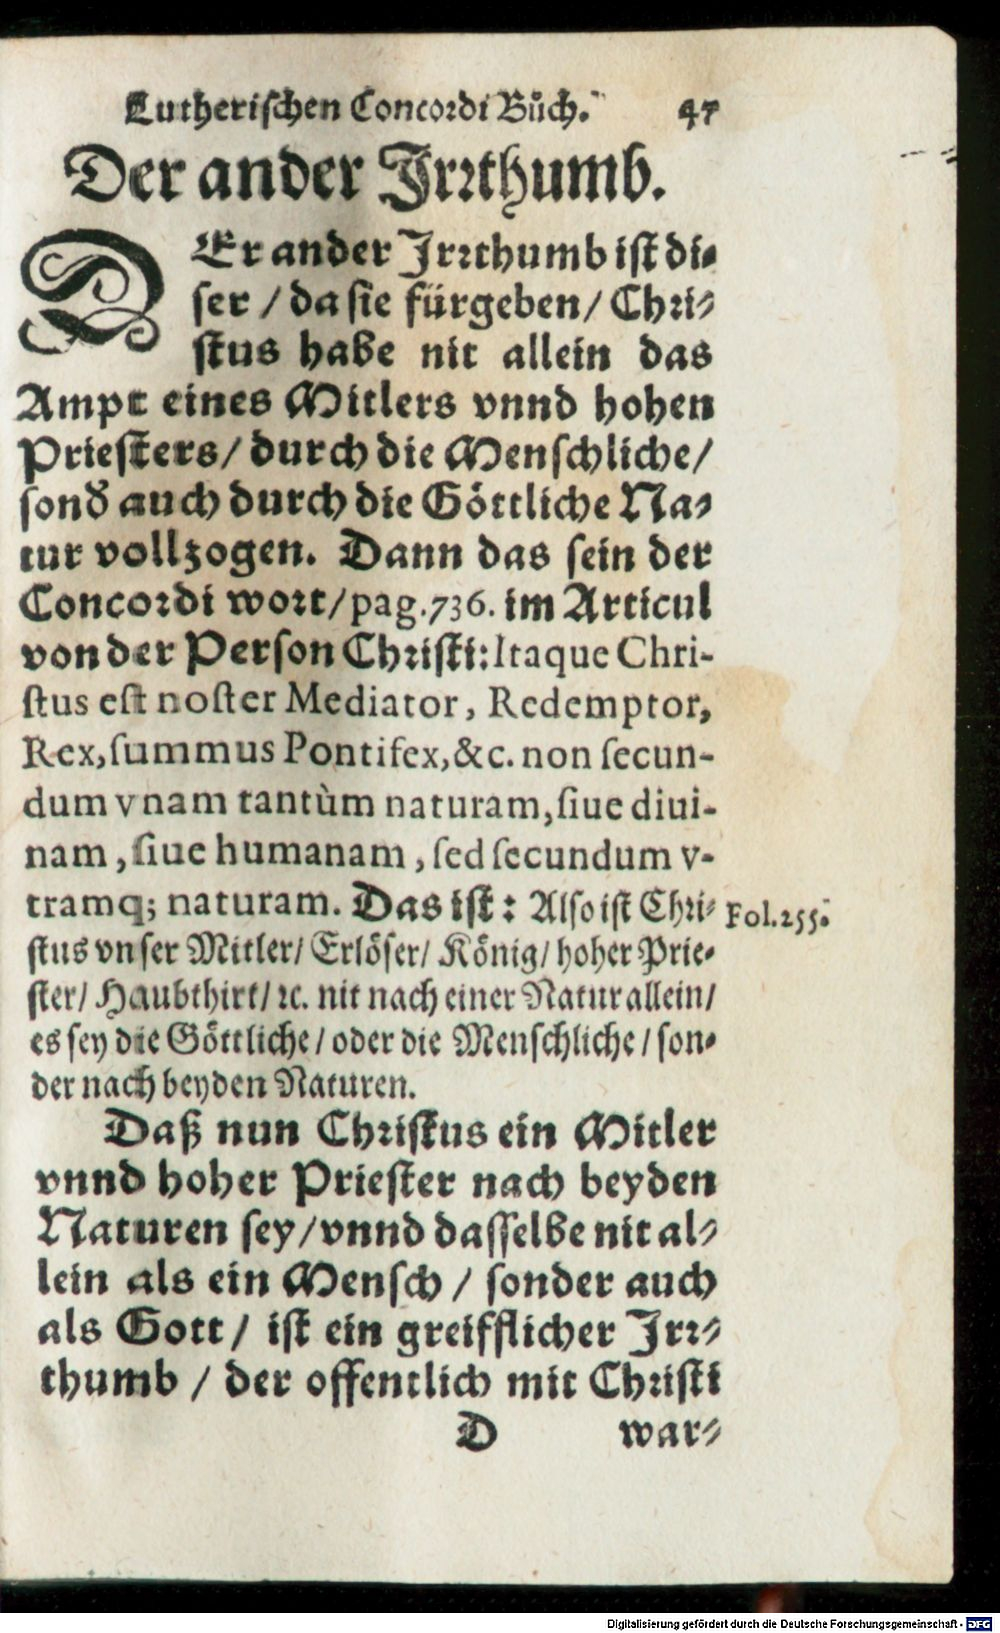 Lutherischen Concordi Bůch. 47
Der ander Irrthumb.
DEr ander Irrthumb ist di-
ser / da sie fürgeben / Chri-
stus habe nit allein das
Ampt eines Mitlers vnnd hohen
Priesters / durch die Menschliche /
sond̃ auch durch die Göttliche Na-
tur vollzogen. Dann das sein der
Concordi wort / pag. 736. im Articul
von der Person Christi: Itaque Chri-
stus est noster Mediator, Redemptor,
Rex, summus Pontifex, &c. non secun-
dum vnam tantùm naturam, siue diui-
nam, siue humanam, sed secundum v-
tramq; naturam. Das ist: Also ist Chri- Fol. 255.
stus vnser Mitler / Erlöser / König / hoher Prie-
ster / Haubthirt / ꝛc. nit nach einer Natur allein /
es sey die Göttliche / oder die Menschliche / son-
der nach beyden Naturen.
Daß nun Christus ein Mitler
vnnd hoher Priester nach beyden
Naturen sey / vnnd dasselbe nit al-
lein als ein Mensch / sonder auch
als Gott / ist ein greifflicher Irr-
thumb / der offentlich mit Christi
D war-
Digitalisierung gefördert durch die Deutsche Forschungsgemeinschaft - DFG